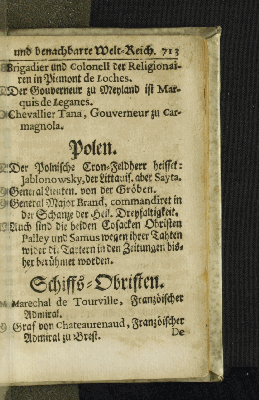 und benachbarte Welt-Reich. 713
Brigadier und Colonell der Religionai-
ren in Piemont de Loches.
Der Gouverneur zu Meyland ist Mar-
quis de Leganes.
Chevallier Tana, Gouverneur zu Car-
magnola.
Polen.
Der Polnische Cron-Feldherr heisset:
Jablonowsky, der Littauis. aber Sayta.
General Lieuten. von der Gröben.
General Major Brand, commandiret in
der Schantze der Heil. Dreyfaltigkeit.
Auch sind die beiden Cosacken Obristen
Palley und Samus wegen ihrer Tahten
wider di. Tartern in den Zeitungen bis-
her berühmet worden.
Schiffs-Obristen.
Marechal de Tourville, Französischer
Admiral.
Graf von Chateaurenaud, Französischer
Admiral zu Brest.
De